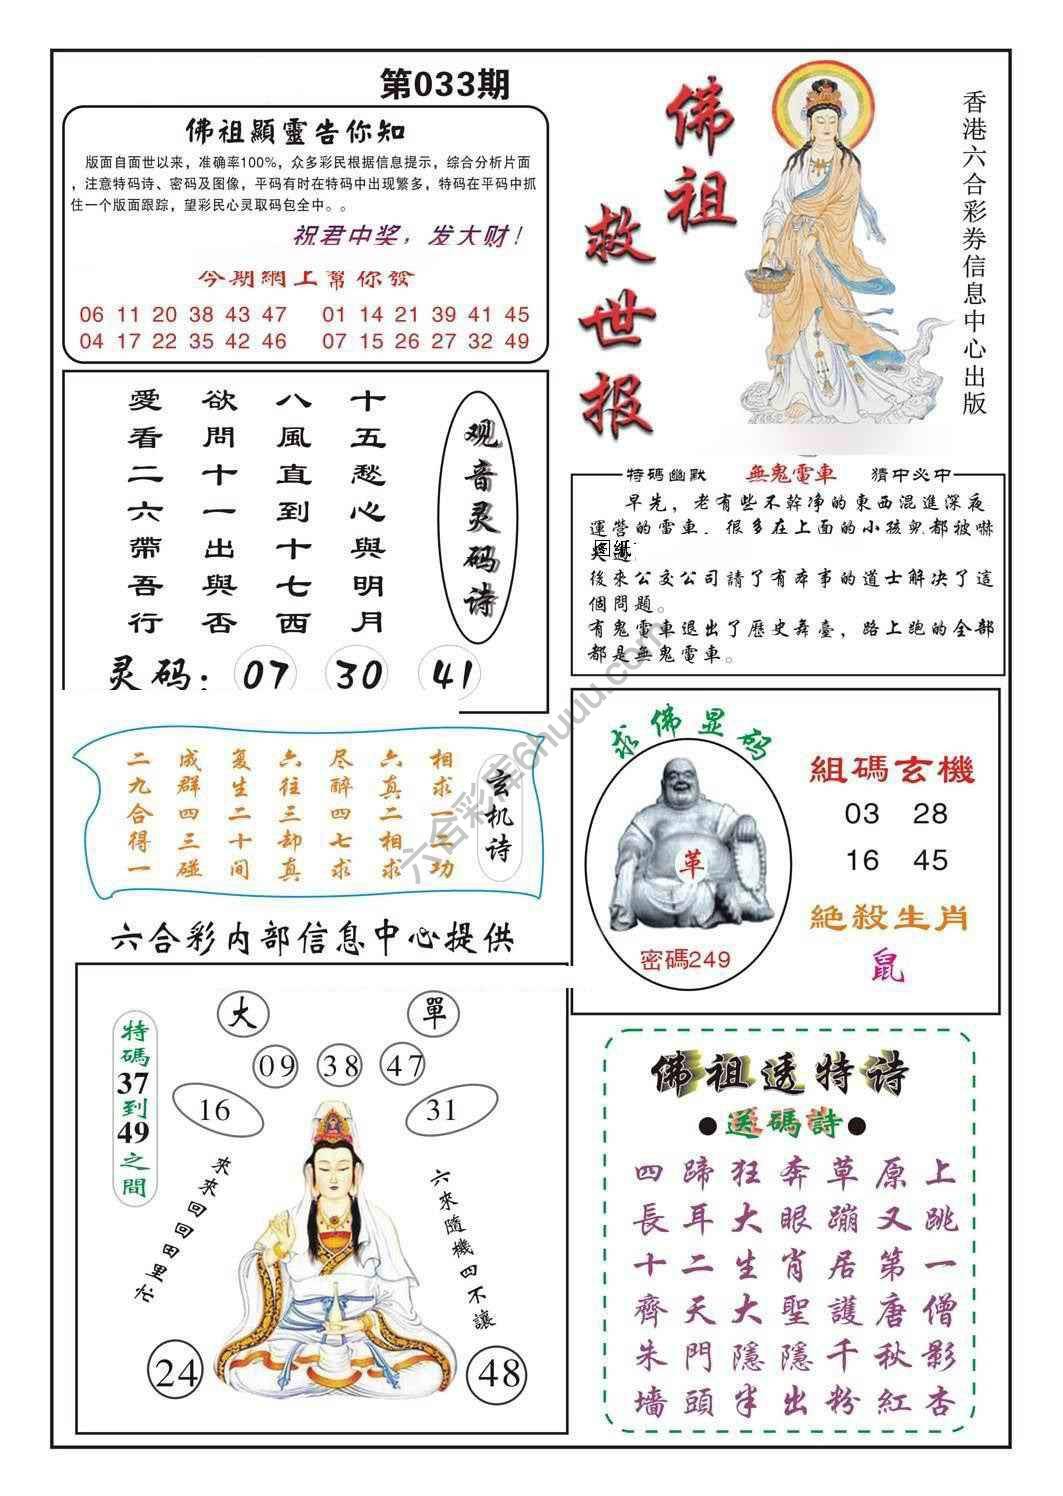 第033期
佛祖顯靈告你知
版面自面世以来，准确率100%，众多彩民根据信息提示，综合分析片面
，注意特码诗、密码及图像，平码有时在特码中出现繁多，特码在平码中抓
住一个版面跟踪，望彩民心灵取码包全中。。
祝君中奖，发大财！
今期網上幫你發
06 11 20 38 43 47 01 14 21 39 41 45
04 17 22 35 42 46 07 15 26 27 32 49
佛祖
救世报
香港六合彩券信息中心出版
观音灵码诗
十五愁心與明月
八風直到十七西
欲問十一出與否
愛看二六帶吾行
灵码：07 30 41
特碼幽默 無鬼電車 猜中必中
早先，老有些不幹净的東西混進深夜
運營的電車．很多在上面的小孩兒都被嚇
後來公交公司請了有本事的道士解决了這
個問題。
有鬼電車退出了歷史舞臺，路上跑的全部
都是無鬼電車。
玄机诗
相求一三功
六真二相求
尽醉四七求
六往三却真
复生二十间
成群四三碰
二九合得一
求佛显码
革
密碼249
組碼玄機
03 28
16 45
絶殺生肖
鼠
六合彩内部信息中心提供
大 單
09 38 47
16 31
特碼37到49之間
來來回回田里忙
六來隨機四不讓
24 48
佛祖透特诗
●送碼詩●
四蹄狂奔草原上
長耳大眼蹦又跳
十二生肖居第一
齊天大聖護唐僧
朱門隱隱千秋影
墙頭半出粉紅杏
六合彩库6huuu.com